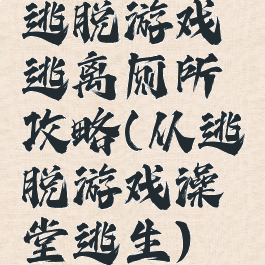 逃脱游戏
逃离厕所
攻略(从逃
脱游戏澡
堂逃生)